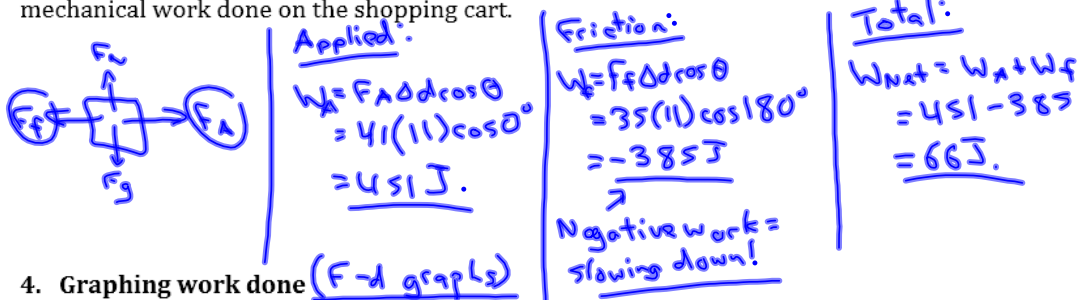 mechanical work done on the shopping cart.
F_N
F_f F_A
F_g
Applied:
W_A = F_A Δd cos θ
= 41(11)cos0°
= 451 J.
Friction:
W_f = F_f Δd cos θ
= 35(11)cos180°
= -385J
Negative work =
slowing down!
Total:
W_Net = W_A + W_f
= 451 - 385
= 66J.
4. Graphing work done (F-d graphs)